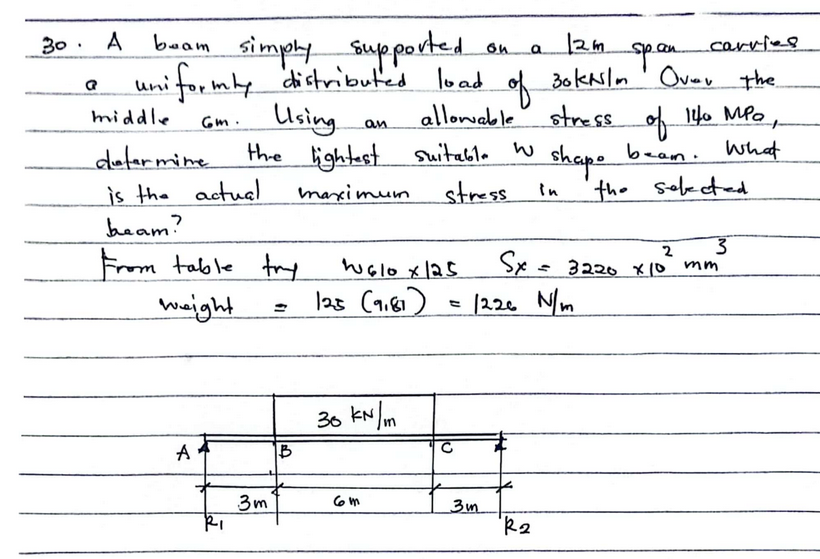 30. A beam simply supported on a 12m span carries
a uniformly distributed load of 30kN/m Over the
middle 6m. Using an allowable stress of 140 MPa,
determine the lightest suitable W shape beam. What
is the actual maximum stress in the selected
beam?
From table try W610 x 125 Sx = 3220 x10² mm³
weight = 125 (9.81) = 1226 N/m
30 kN/m
A B C
3m 6m 3m
R1 R2